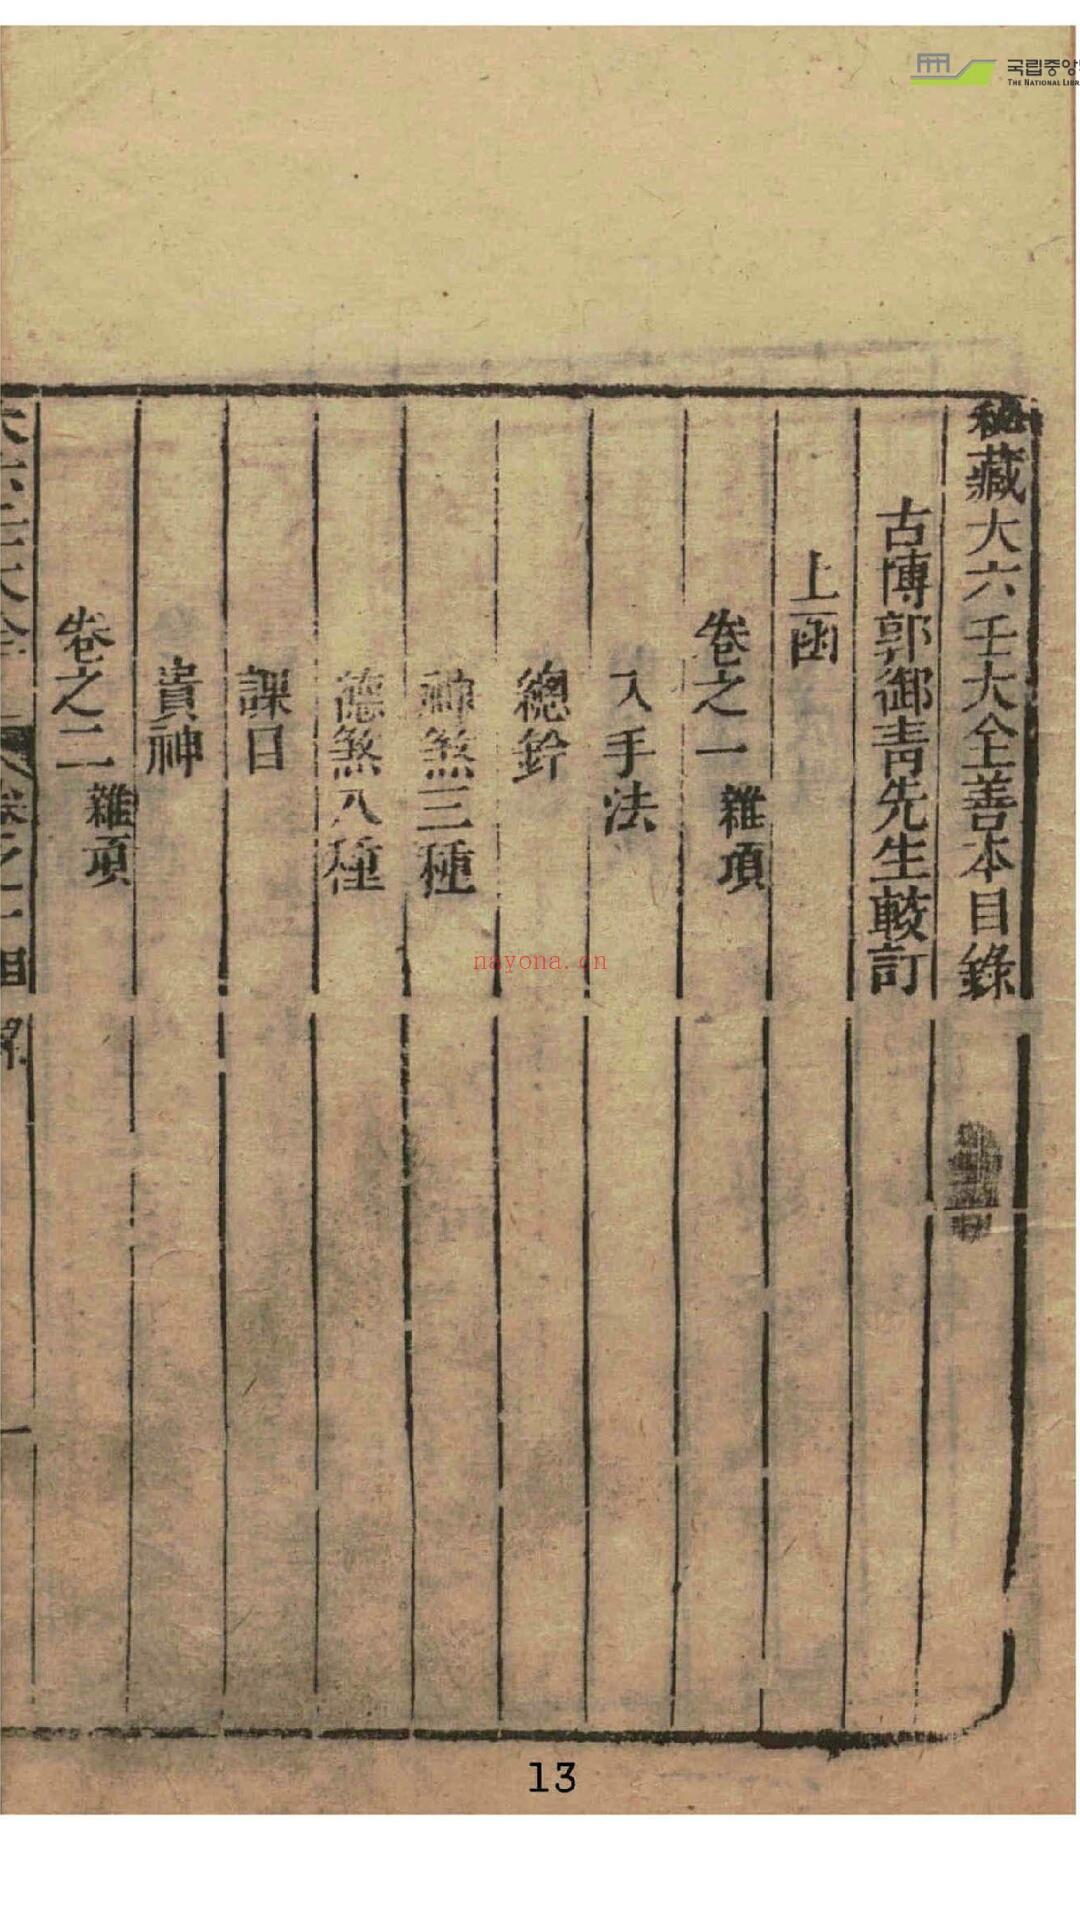 국립중앙
THE NATIONAL LIBR
秘藏大六壬大全善本目錄
古博郭御青先生較訂
上函
卷之一 雜項
入手法
總鈐
神煞三種
德煞八種
課目
貴神
卷之二 雜項
大六壬大全
卷之一目
一
nayona.cn
13